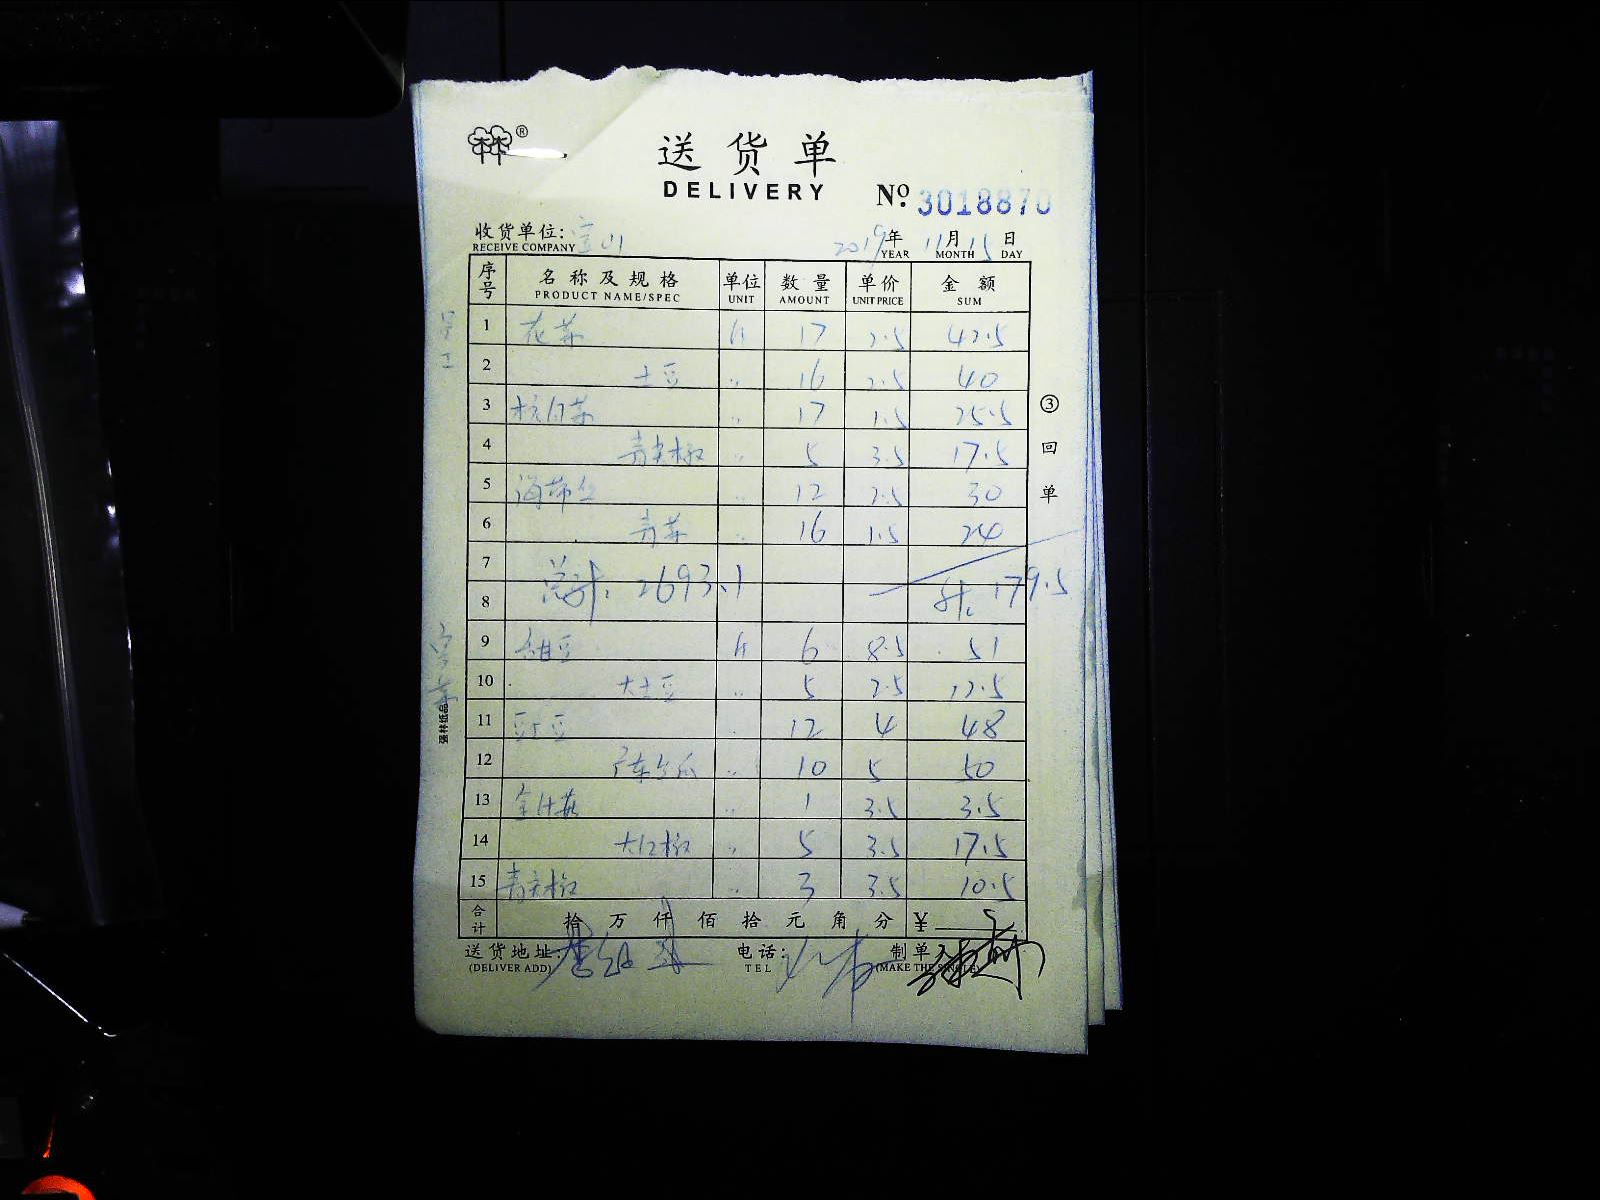 ®
送货单
DELIVERY
Nº. 3018870
收货单位: 宝山 2019年 11月 15日
RECEIVE COMPANY YEAR MONTH DAY
序号 名称及规格 单位 数量 单价 金额
PRODUCT NAME/SPEC UNIT AMOUNT UNIT PRICE SUM
1 花菜 斤 17 2.5 42.5
2 土豆 〃 16 2.5 40
3 杭白菜 〃 17 1.5 25.5
4 青尖椒 〃 5 3.5 17.5
5 海带丝 〃 12 2.5 30
6 青菜 〃 16 1.5 24
7
总计: 2693.1
8 计: 179.5
9 甜豆 斤 6 8.5 51
10 大土豆 〃 5 2.5 12.5
11 豇豆 〃 12 4 48
12 〃 10 5 50
13 金针菇 〃 1 3.5 3.5
14 大红椒 〃 5 3.5 17.5
15 青尖椒 〃 3 3.5 10.5
合计 拾 万 仟 佰 拾 元 角 分 ¥
送货地址: 电话: 制单人
(DELIVER ADD) TEL (MAKE THE SINGLE)
③回单
员工
强林纸品